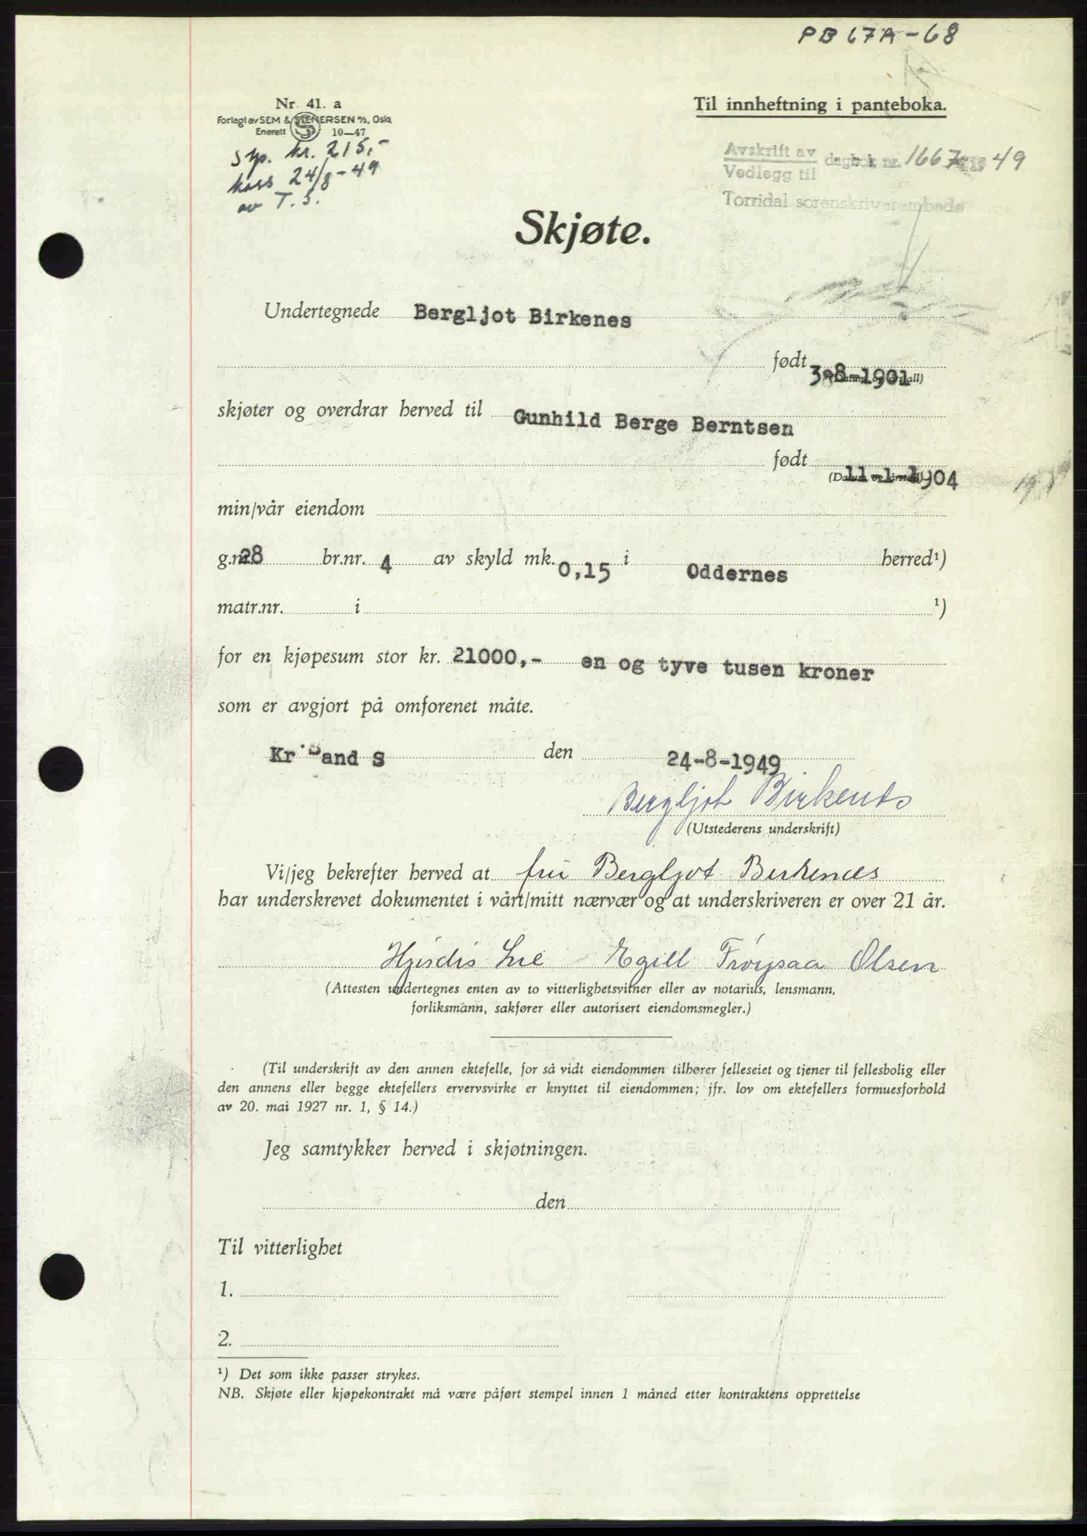 PB 67A-68
Nr. 41. a
Forlagt av SEM & STENERSEN A/S, Oslo
Enerett 10—47
Til innheftning i panteboka.
Stp. kr. 215,-
kass 24/8-49
av T. S.
Avskrift av
Vedlegg til
dagbok nr. 1667 1949
Torridal sorenskriverembede
Skjøte.
Undertegnede Bergljot Birkenes
født 3-8-1901
skjøter og overdrar herved til Gunhild Berge Berntsen
født 11-1-1904
(Datum og årstall)
min/vår eiendom
g.nr. 28 br.nr. 4 av skyld mk. 0,15 i Oddernes herred¹)
matr.nr. i ¹)
for en kjøpesum stor kr. 21000,- en og tyve tusen kroner
som er avgjort på omforenet måte.
Kr'sand S den 24-8-1949
Bergljot Birkenes
(Utstederens underskrift)
Vi/jeg bekrefter herved at fru Bergljot Birkenes
har underskrevet dokumentet i vårt/mitt nærvær og at underskriveren er over 21 år.
Hjisdis Lie Egill Trøysaa Olsen
(Attesten undertegnes enten av to vitterlighetsvitner eller av notarius, lensmann,
forliksmann, sakfører eller autorisert eiendomsmegler.)
(Til underskrift av den annen ektefelle, for så vidt eiendommen tilhører felleseiet og tjener til fellesbolig eller
den annens eller begge ektefellers ervervsvirke er knyttet til eiendommen; jfr. lov om ektefellers formuesforhold
av 20. mai 1927 nr. 1, § 14.)
Jeg samtykker herved i skjøtningen.
den
Til vitterlighet
1.
2.
¹) Det som ikke passer strykes.
NB. Skjøte eller kjøpekontrakt må være påført stempel innen 1 måned etter kontraktens opprettelse